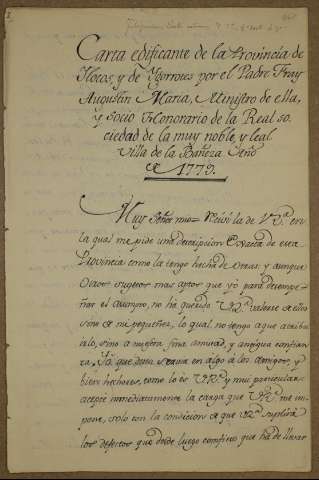 Carta edificante de la Provincia de
Ilocos, y de Ygorrotes por el Padre Fray
Augustin Maria, Ministro de ella,
y Socio Honorario de la Real so
ciedad de la muy noble, y leal
Villa de la Bañeza
1779.
Muy Señor mio: Recivi la de V. en
la qual me pide una descripcion exacta de esta
Provincia como la tengo hecha de otras: y aunque
otros sugetos mas aptos que yo para desempe-
ñar el asumpto, no ha querido valerse de ellos
sino de mi pequeñez, lo qual no tengo a que atribu
irlo, sino a nuestra fina amistad, y antigua confian
za. Yo que deseo servir en algo a los amigos, y
bien hechores, como lo es y muy particular,
acepté inmediatamente la carga que me im
pone, solo con la condicion de que suplirá
los defectos que desde luego confieso que ha de llevar